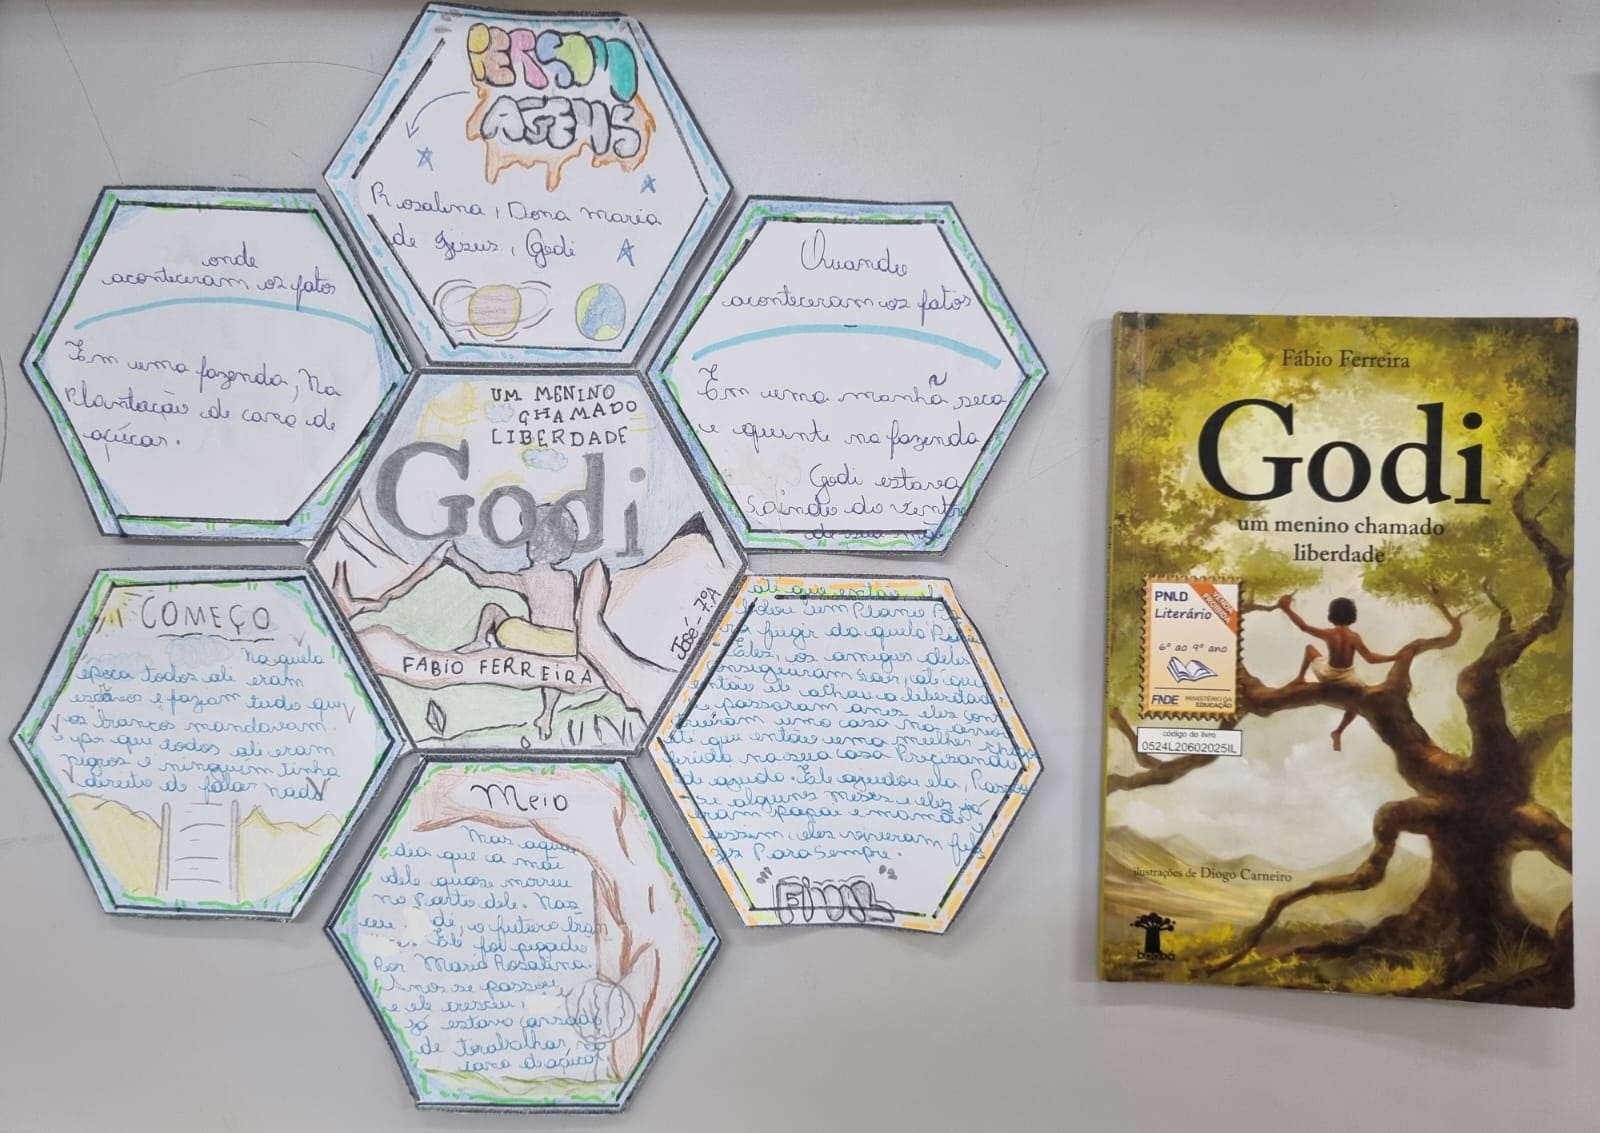 PERSON
AGENS
Rosalina, Dona Maria
de Jizus, Godi
onde
aconteceram os fatos
Em uma fazenda, Na
Plantação de cana de
açúcar.
Quando
aconteceram os fatos
Em uma manhã seca
e quente na fazenda
Godi estava
saindo do ventre
de sua mãe
UM MENINO
CHAMADO
LIBERDADE
Godi
FABIO FERREIRA
José - 7º A
COMEÇO
Naquela
época todos ali eram
e faziam tudo que
os brancos mandavam.
por que todos ali eram
negros e ninguém tinha
direito de falar nada
Meio
Mas aquele
dia que a mãe
dele quase morreu
no parto dele. Nas
ceu. o futuro
Ele foi pegado
Por Maria Rosalina.
Anos se passou
e ele cresceu,
já estava cansado
de terabalhar na
cana de açúcar
até que então
um Plano Pa
ra fugir daquele
Eles, os amigos deles
conseguiram sair, até que
então ele olhou a liberdade
e passaram anos, eles cons
truiram uma casa na arvore
até que então uma mulher chego
ferida na sua casa Precisando
de ajuda. Ele ajudou ela, Passou
se alguns meses e eles já
eram papai e mamãe
assim, eles viveram feli
zes Para sempre.
"FINAL"
Fábio Ferreira
Godi
um menino chamado
liberdade
PNLD
Literário
VENDA PROIBIDA
6º ao 9º ano
FNDE MINISTÉRIO DA EDUCAÇÃO
código do livro
0524L20602025IL
ilustrações de Diogo Carneiro
baobá